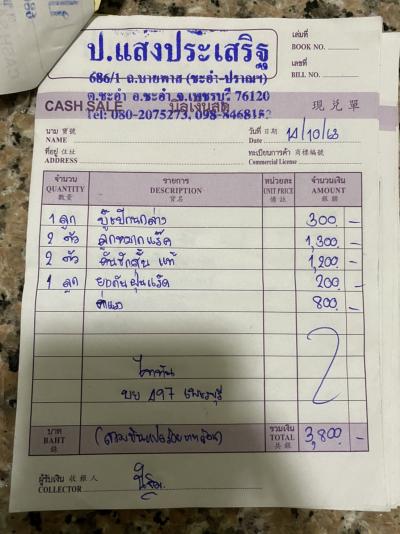 ป.แสงประเสริฐ
686/1 ถ.บายพาส (ชะอำ-ปราณฯ)
ต.ชะอำ อ.ชะอำ จ.เพชรบุรี 76120
Tel: 080-2075273, 098-8468152
เล่มที่
BOOK NO.
เลขที่
BILL NO.
CASH SALE บิลเงินสด 現兌單
นาม 寶號
NAME
วันที่ 日期
Date 14/10/63
ที่อยู่ 住址
ADDRESS
ทะเบียนการค้า 商標編號
Commercial License
จำนวน รายการ หน่วยละ จำนวนเงิน
QUANTITY DESCRIPTION UNIT PRICE AMOUNT
數量 貨名 備註 銀額
1 ลูก บู๊ชปีกนกล่าง 300 -
2 ตัว ลูกหมากแร็ค 1,300 -
2 ตัว คันชักสั้น แท้ 1,200 -
1 ลูก ยางกันฝุ่นแร็ค 200 -
ค่าแรง 800 -
ไททัน
บย 497 เพชรบุรี
บาท รวมเงิน
BAHT (สามพันแปดร้อยบาทถ้วน) TOTAL 3,800 -
銖 共銀
ผู้รับเงิน 收銀人
COLLECTOR